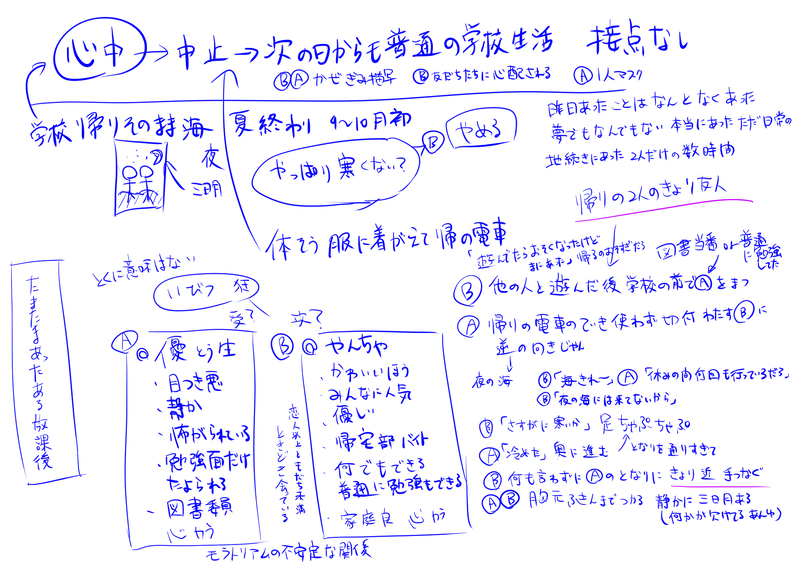 心中→中止→次の日からも普通の学校生活 接点なし
ⒷⒶかぜぎみ Ⓑ友だちたちに心配される Ⓐ1人マスク
学校帰りそのまま海 夏終わり 9~10月初
夜
三日月
やっぱり寒くない?
Ⓑ やめる
昨日あったことはなんとなくあった
夢でもなんでもない 本当にあった ただ日常の
地続きにあった2人だけの数時間
帰りの2人のきょり友人
体そう服に着がえて帰の電車
「遊んでたらおそくなったけど
まにあった」帰るのおそだろ
図書当番 or 普通に勉強してた
Ⓑ 他の人と遊んだ後 学校の前でⒶをまつ
Ⓐ 帰りの電車のていき使わず切付わたすⒷに
逆の向きじゃん
夜の海 Ⓑ「海きれ~」Ⓐ「休みの向付回も行っているだろ」
Ⓑ「夜の海には来てないから」
Ⓑ「さすがに寒いか」足ちゃぷちゃぷ
Ⓐ「冷めた」奥に進む となりを通りすぎて
Ⓑ 何も言わずにⒶのとなりに きょり近 手つなぐ
ⒶⒷ 胸元ふきんまでつかる 静かに三日月みる
(何かが欠けてるあんゆ)
たまたまあったある放課後
とくに意味はない
いびつ
受? 攻?
Ⓐ
@優とう生
・目つき悪
・静か
・怖がられている
・勉強面だけ
たよられる
・図書委員
心
Ⓑ
@やんちゃ
・かわいいほう
・みんなに人気
・優しい
・帰宅部 バイト
・何でもできる
普通に勉強もできる
・家庭良 心
恋人以上ともだち未満
ときどき会っている
モラトリアムの不安定な関係